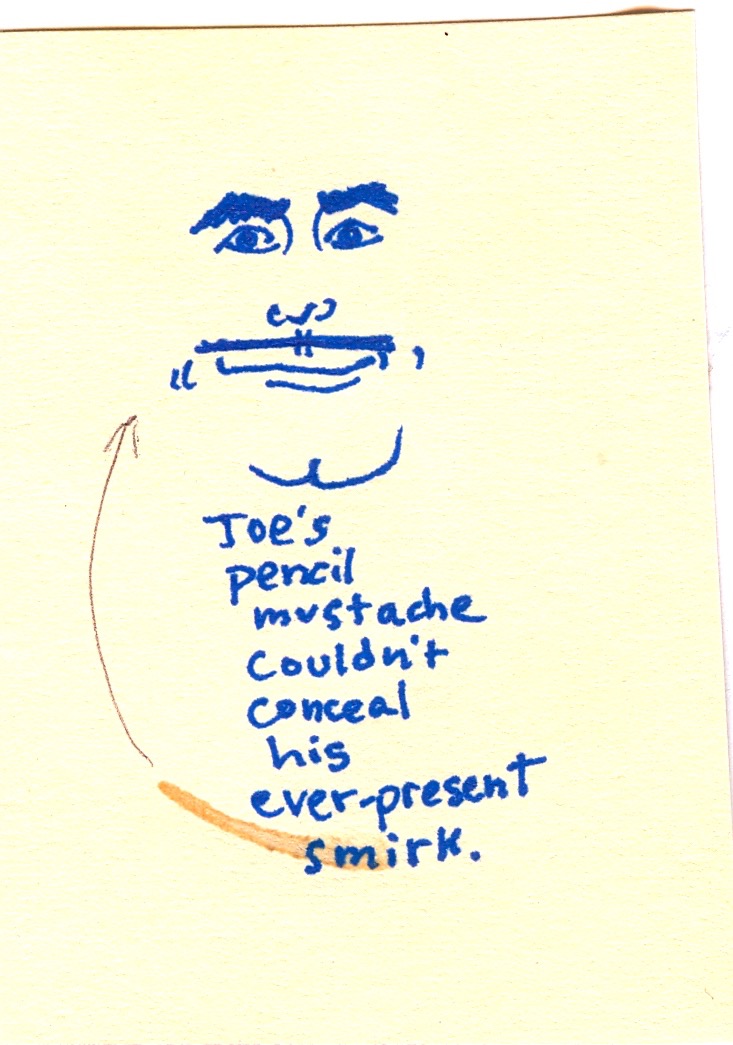 Joe's
pencil
mustache
couldn't
conceal
his
ever-present
smirk.